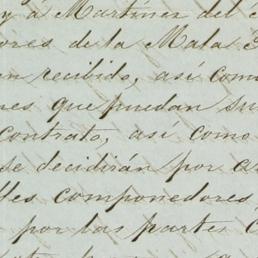 y á Martinez del
ores de la Mala
recibido, así como
que puedan
contrato, así como
se decidirán por
componedores
por las partes